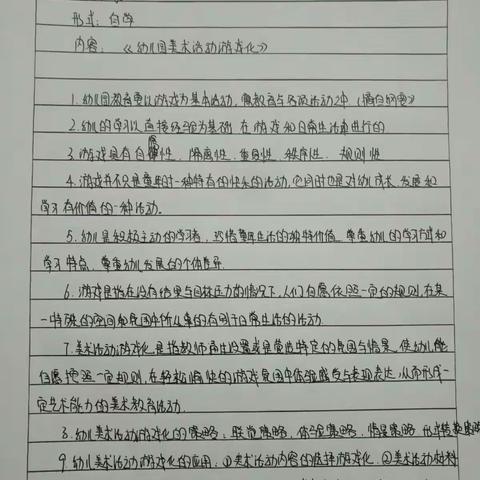 形式：自学
内容：《幼儿园美术活动游戏化》
1. 幼儿园教育要以游戏为基本活动，寓教育与各项活动之中（摘自纲要）
2. 幼儿的学习以直接经验为基础 在游戏和日常生活中进行的
3. 游戏具有自愿性、隔离性、重复性、秩序性、规则性
4. 游戏并不只是童年时一种特有的快乐的活动，它同时也是对幼儿成长、发展和
学习有价值的一种活动。
5. 幼儿是积极主动的学习者，珍惜童年生活的独特价值、尊重幼儿的学习方式和
学习特点、尊重幼儿发展的个体差异
6. 游戏是指在没有结果与目标压力的情况下，人们自愿依照一定的规则，在某
一特殊的空间和氛围中所从事的有别于日常生活的活动
7. 美术活动游戏化是指教师通过设置或是营造特定的氛围与情景，使幼儿能
自愿按照一定规则，在轻松愉快的游戏氛围中体验感受与表现表达，从而形成一
定艺术能力的美术教育活动.
8. 幼儿美术活动游戏化的策略：联觉策略，体验策略，情景策略
9. 幼儿美术活动游戏化的应用：①美术活动内容的选择游戏化. ②美术活动材料